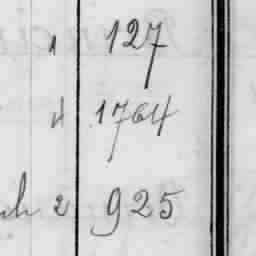 1 127
4 1764
2 925